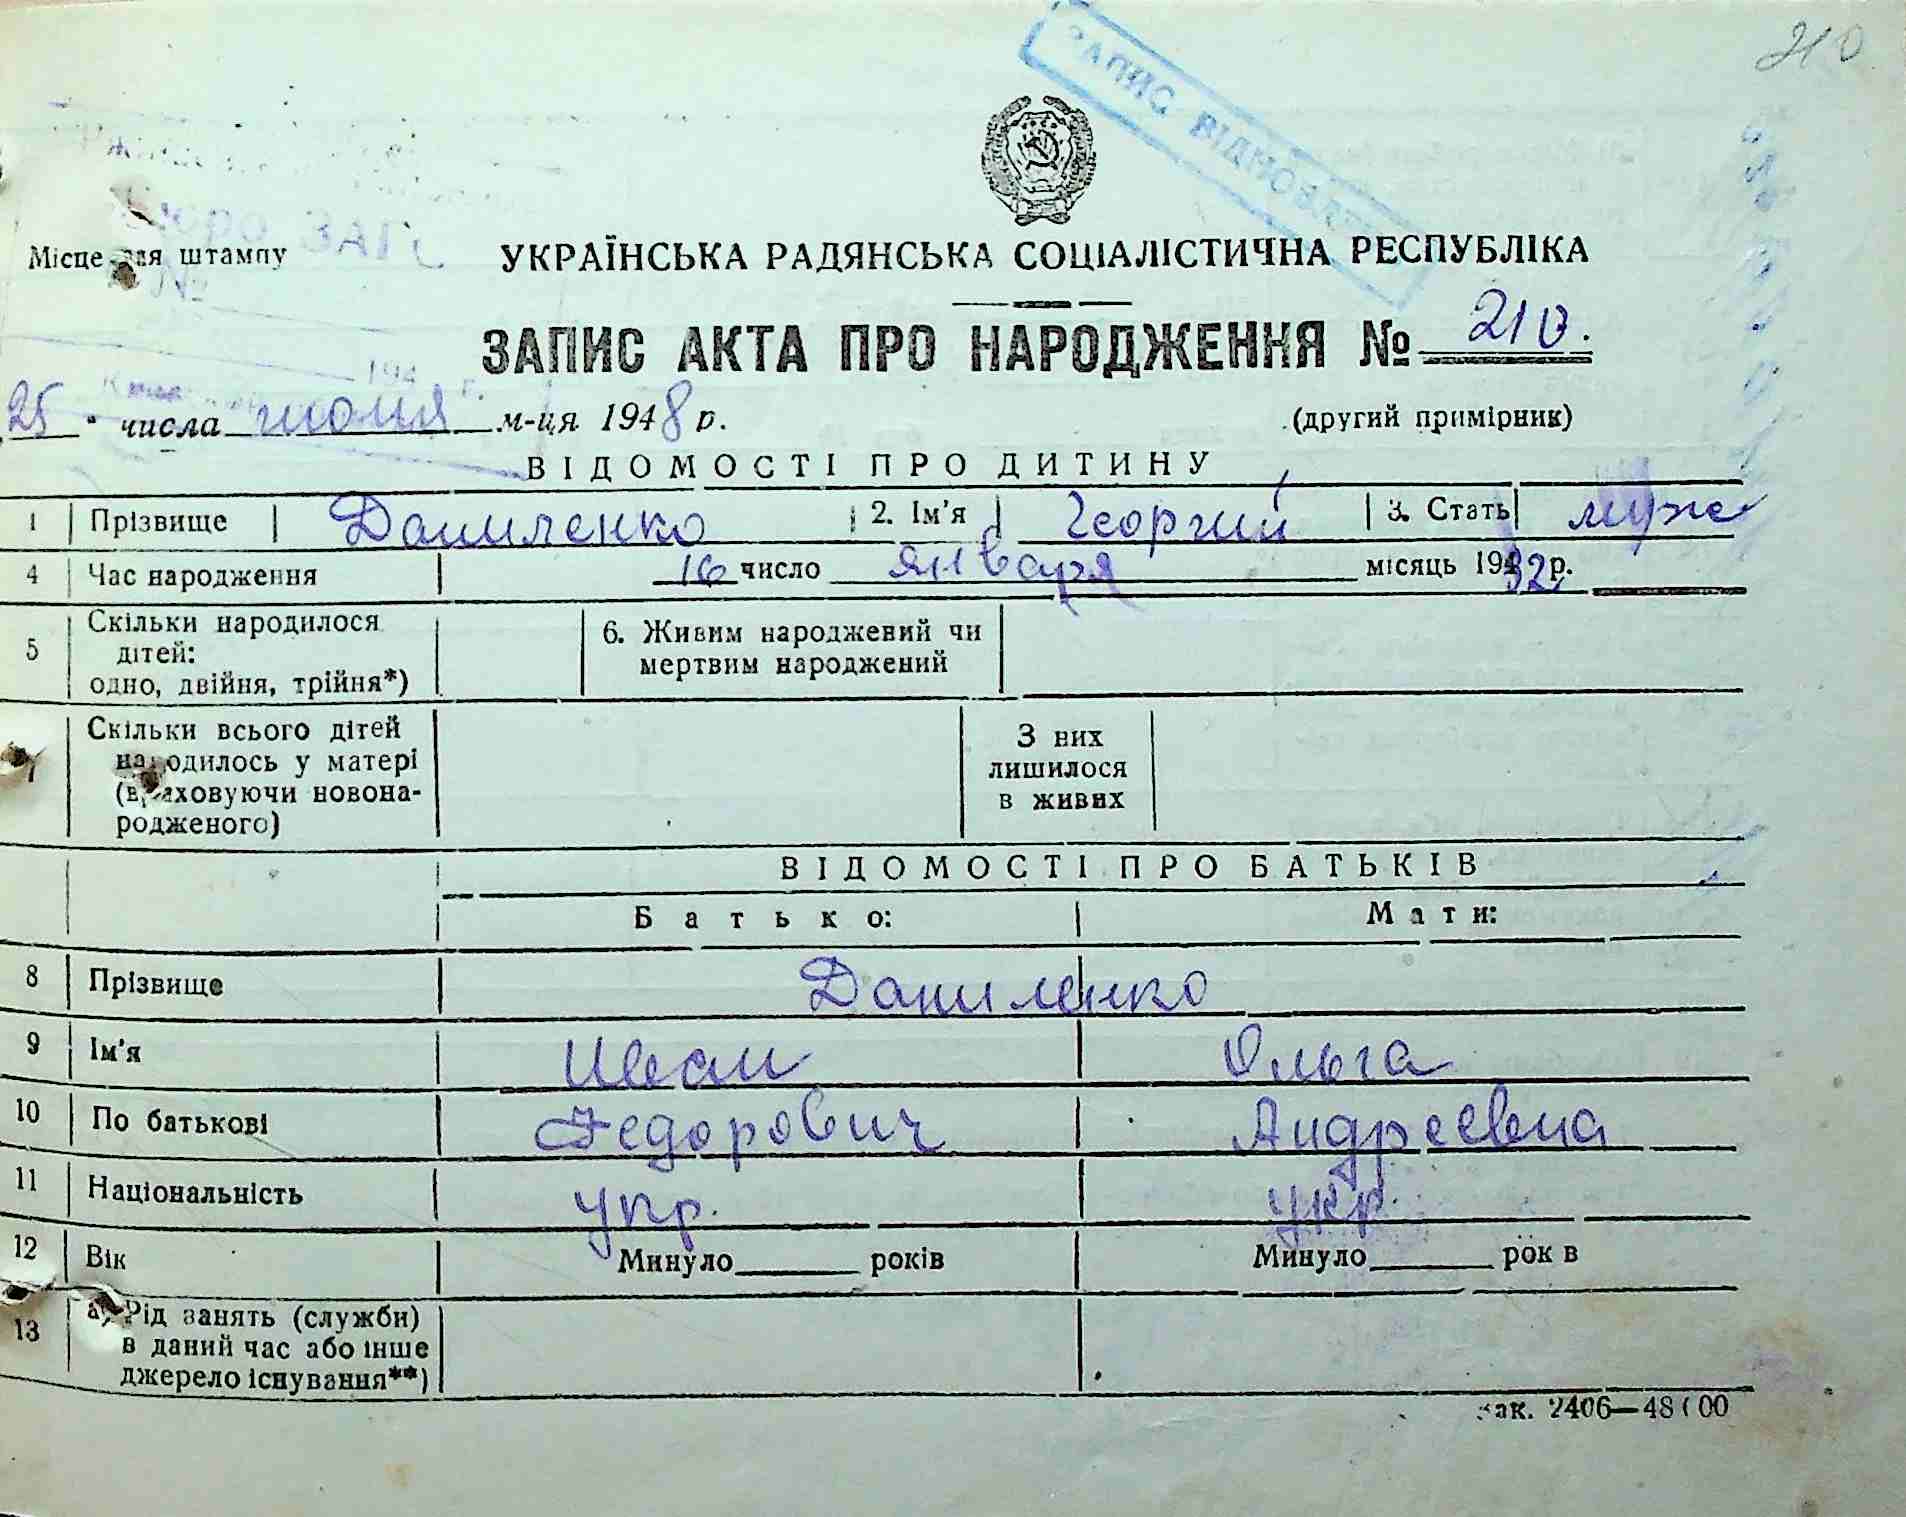 210
ЗАПИС ВІДНОВЛЕ
Бюро ЗАГС
№
Місце для штампу
УКРАЇНСЬКА РАДЯНСЬКА СОЦІАЛІСТИЧНА РЕСПУБЛІКА
ЗАПИС АКТА ПРО НАРОДЖЕННЯ № 210.
194 г.
25 " числа июля м-ця 1948 р.
(другий примірник)
ВІДОМОСТІ ПРО ДИТИНУ
1 Прізвище Даниленко 2. Ім'я Георгий 3. Стать муж
4 Час народження 16 число января місяць 1932 р.
5 Скільки народилося
дітей:
одно, двійня, трійня*)
6. Живим народжений чи
мертвим народжений
7 Скільки всього дітей
народилось у матері
(враховуючи новона-
родженого)
З них
лишилося
в живих
ВІДОМОСТІ ПРО БАТЬКІВ
Батько: Мати:
8 Прізвище Даниленко
9 Ім'я Иван Ольга
10 По батькові Федорович Андреевна
11 Національність укр. укр.
12 Вік Минуло років Минуло рок в
13 а) Рід занять (служби)
в даний час або інше
джерело існування**)
зак. 2406—48 00